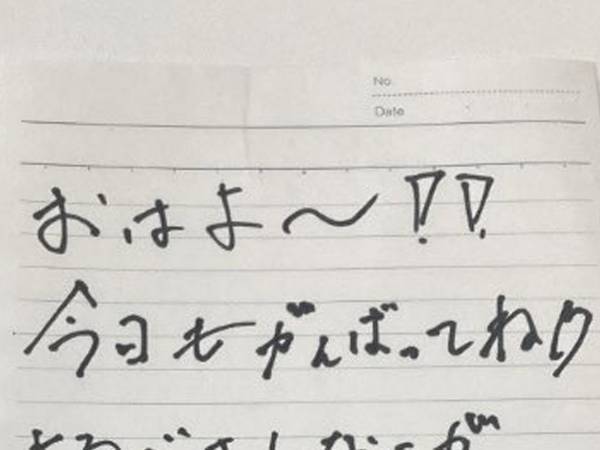 No.
Date
おはよ〜!!
今日もがんばってね